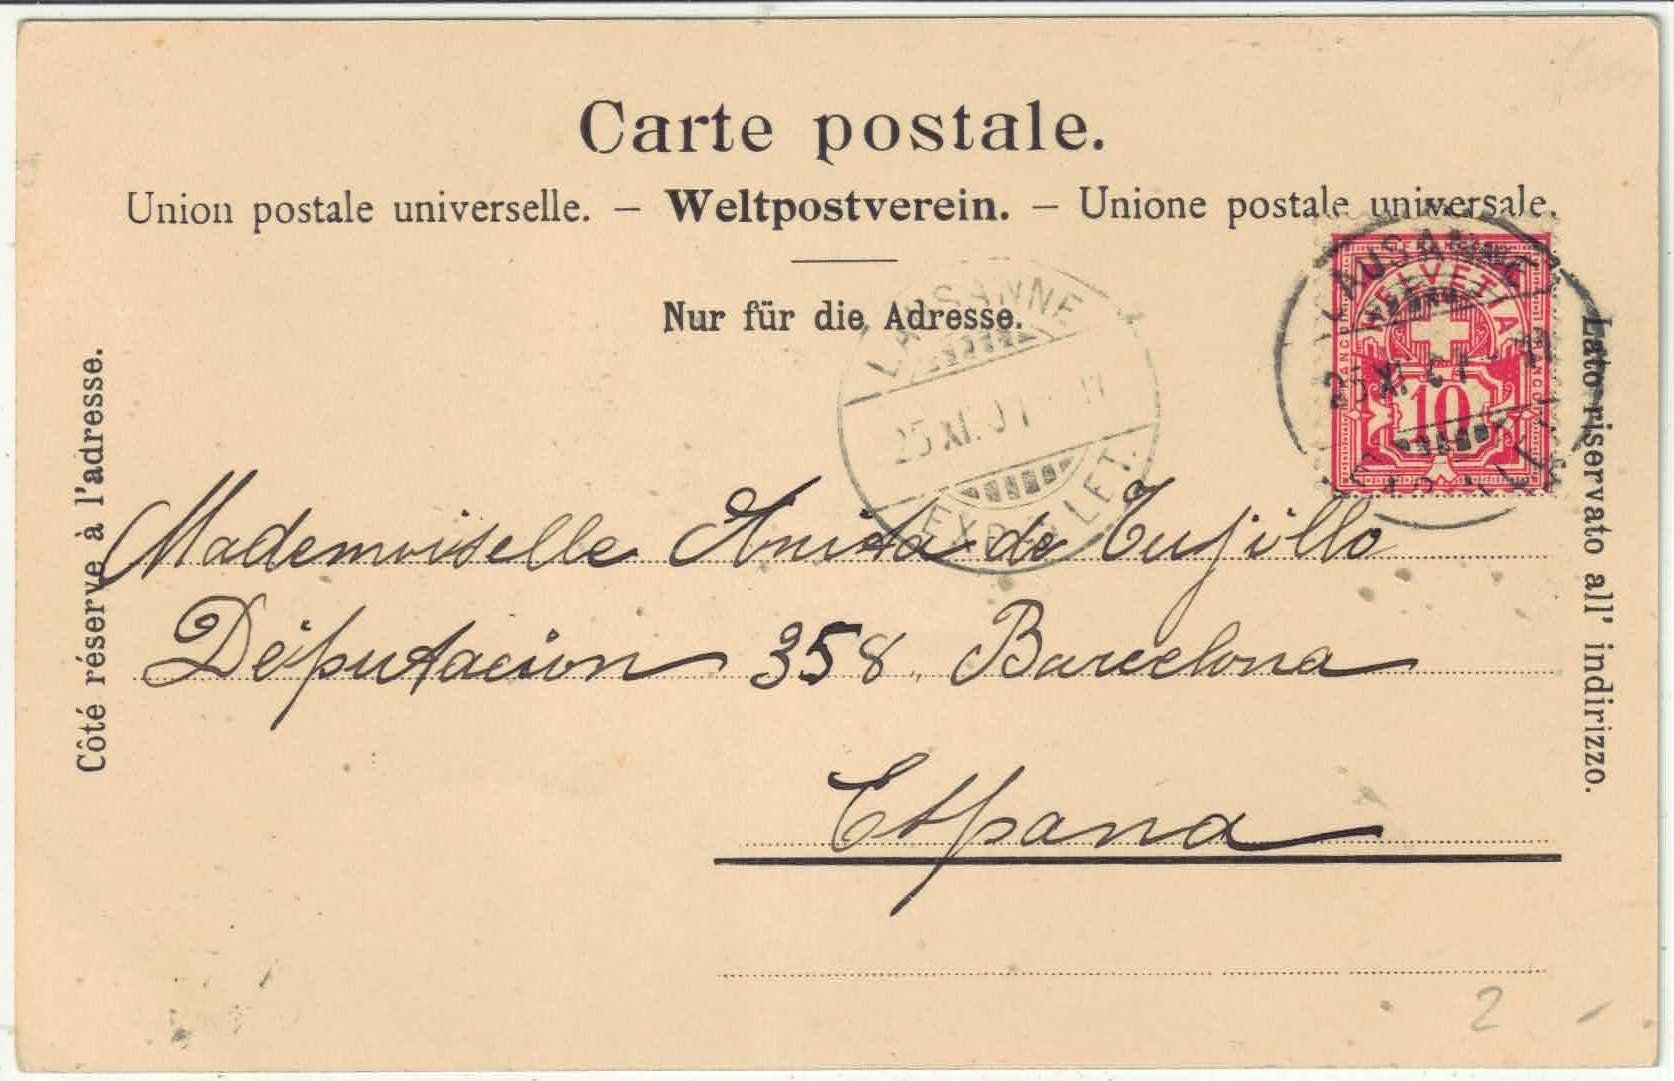 Carte postale.
Union postale universelle. – Weltpostverein. – Unione postale universale.
Nur für die Adresse.
Côté réservé à l'adresse.
Lato riservato all' indirizzo.
LAUSANNE
25 XI. 01 - 11
EXP. LET.
LAUSANNE
25 XI. 01 - 11
HELVETIA
FRANCO
10
Mademoiselle Anita de Tujillo
Députacion 358 Barcelona
Espana
2